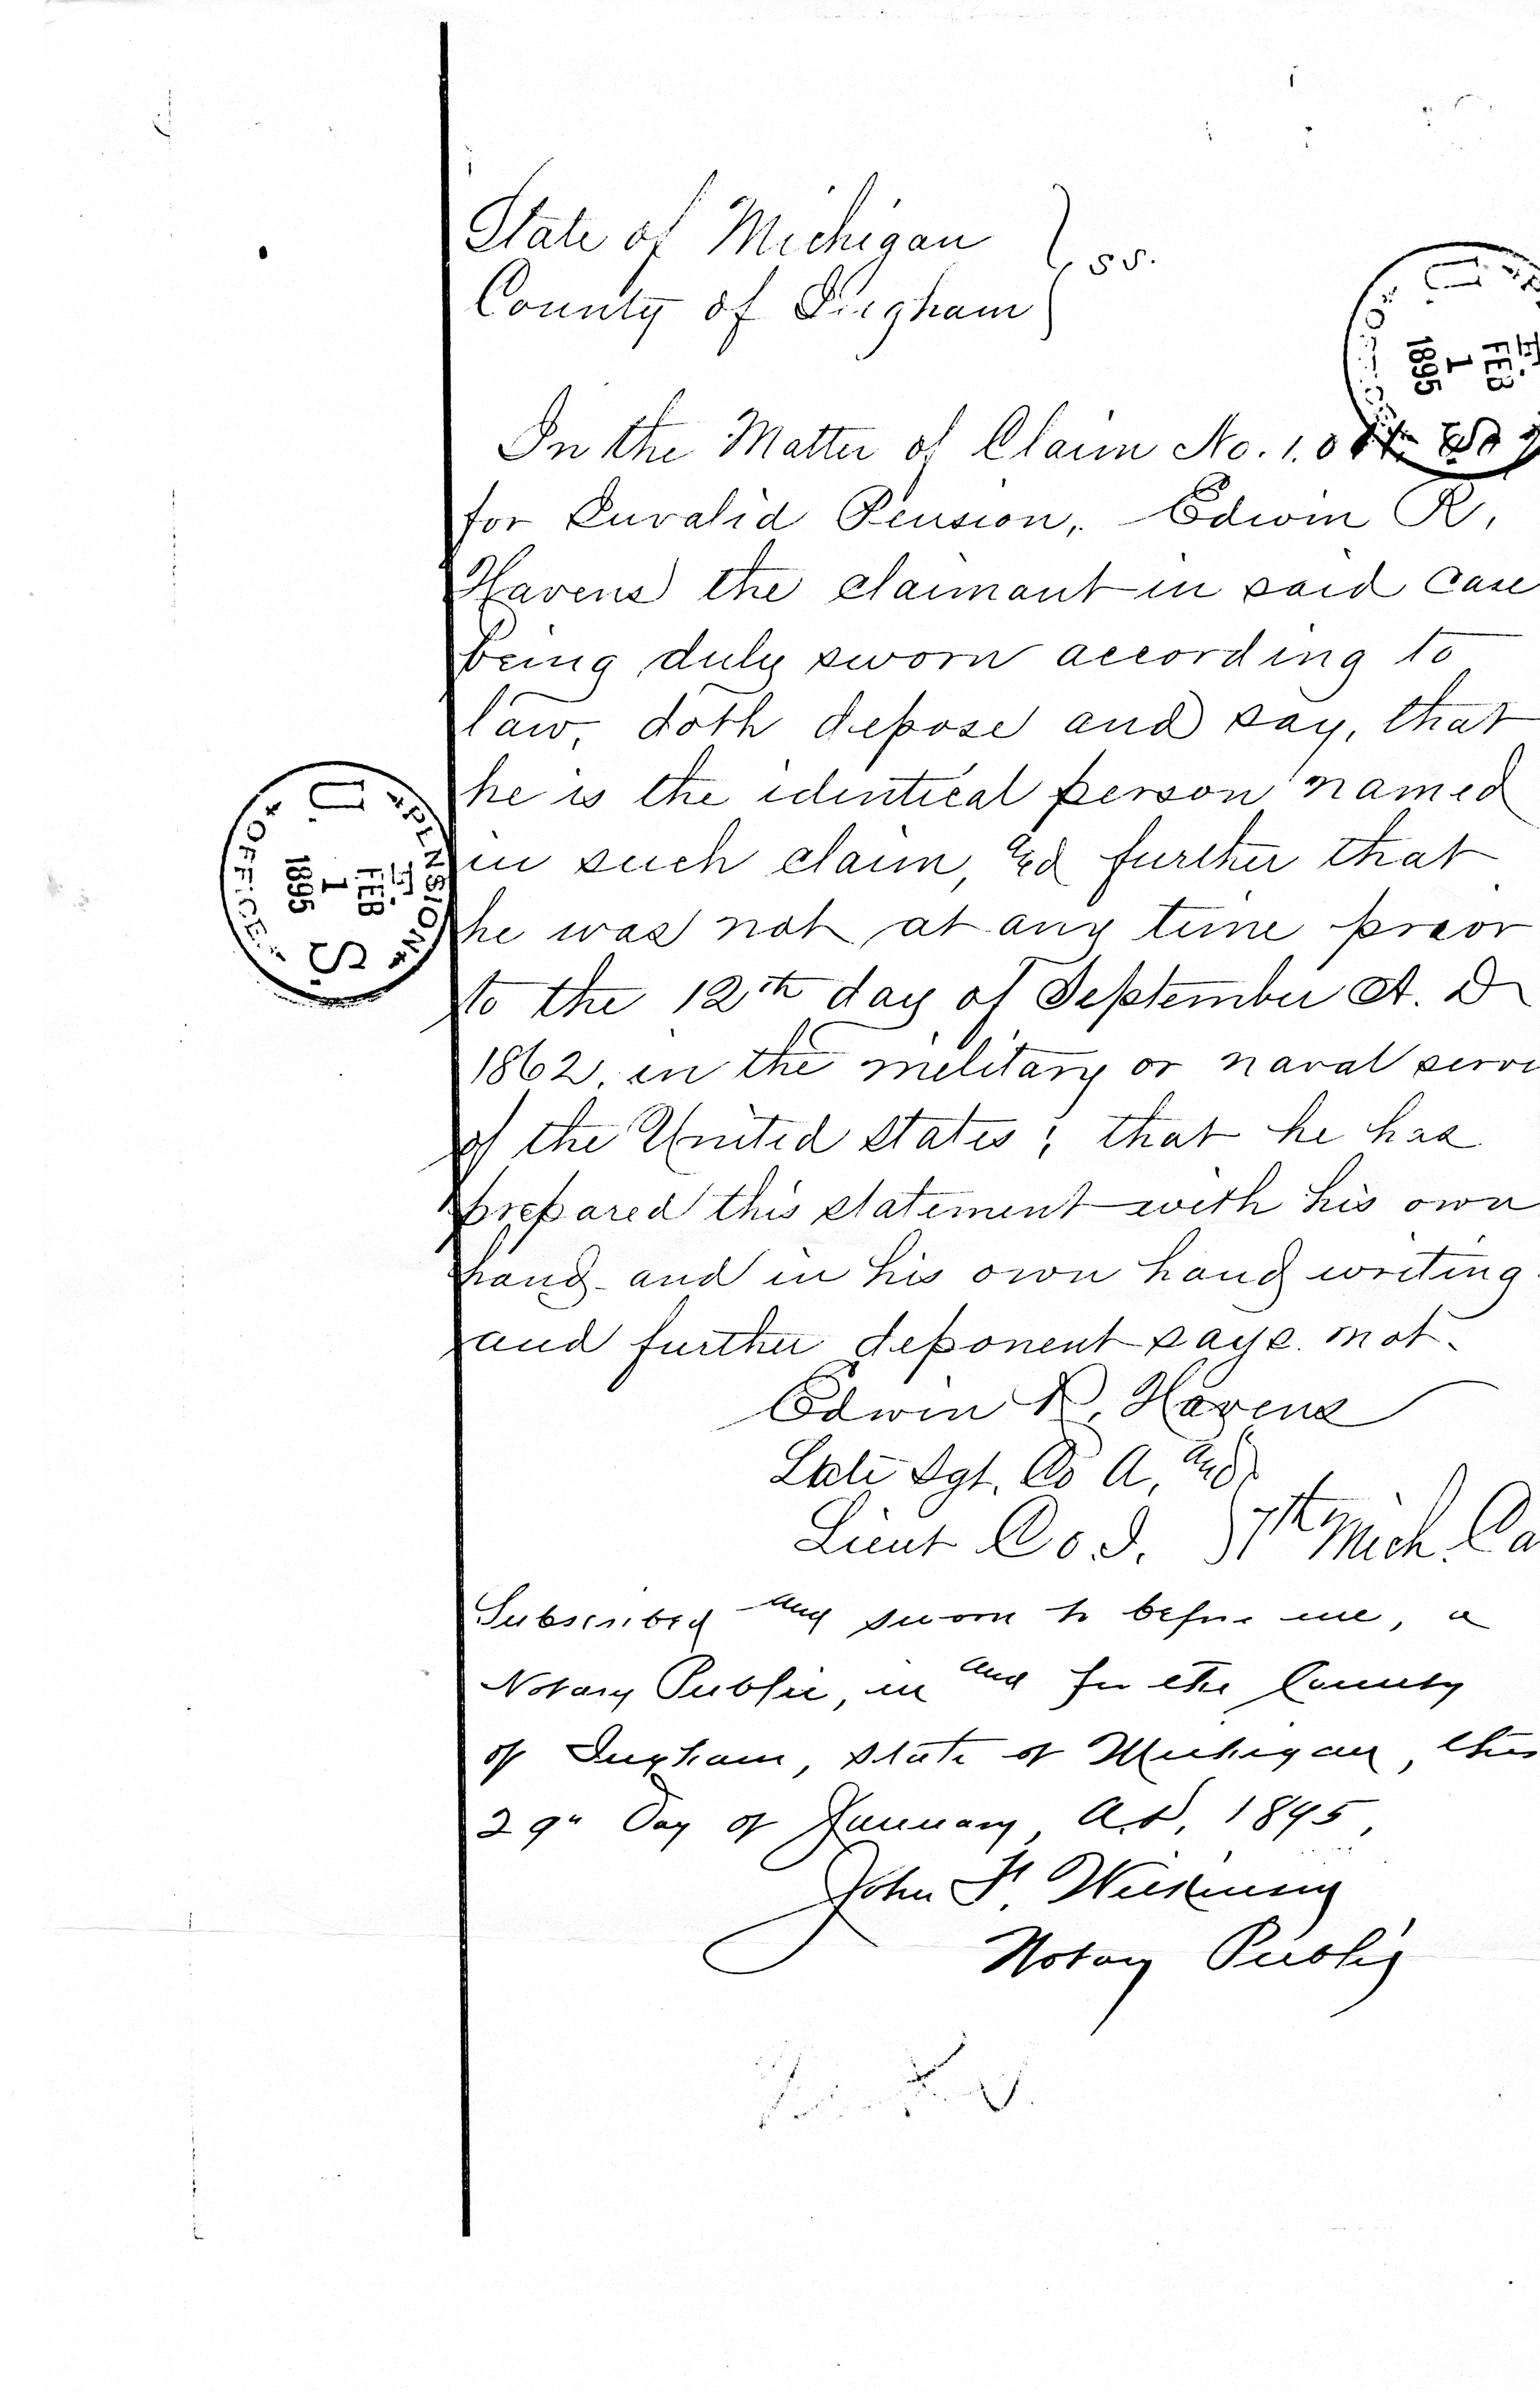 State of Michigan } ss.
County of Ingham }
In the Matter of Claim No. 1.0
for Invalid Pension, Edwin R,
Havens the claimant in said case
being duly sworn according to
law, doth depose and say, that
he is the identical person named
in such claim, and further that
he was not at any time prior
to the 12th day of September A. D
1862, in the military or naval servi
of the United States; that he has
prepared this statement with his own
hand and in his own hand writing
and further deponent says not.
Edwin R, Havens
Late Sgt. Co A, and
Lieut Co. I. } 7th Mich. Ca
Subscribed and sworn to before me, a
Notary Public, in and for the County
of Ingham, State of Michigan, this
29" Day of January, A.D, 1895,
John F. Wilkinson
Notary Public
U. S. PENSION OFFICE
FEB
1
1895
U. S. OFFICE
FEB
1
1895